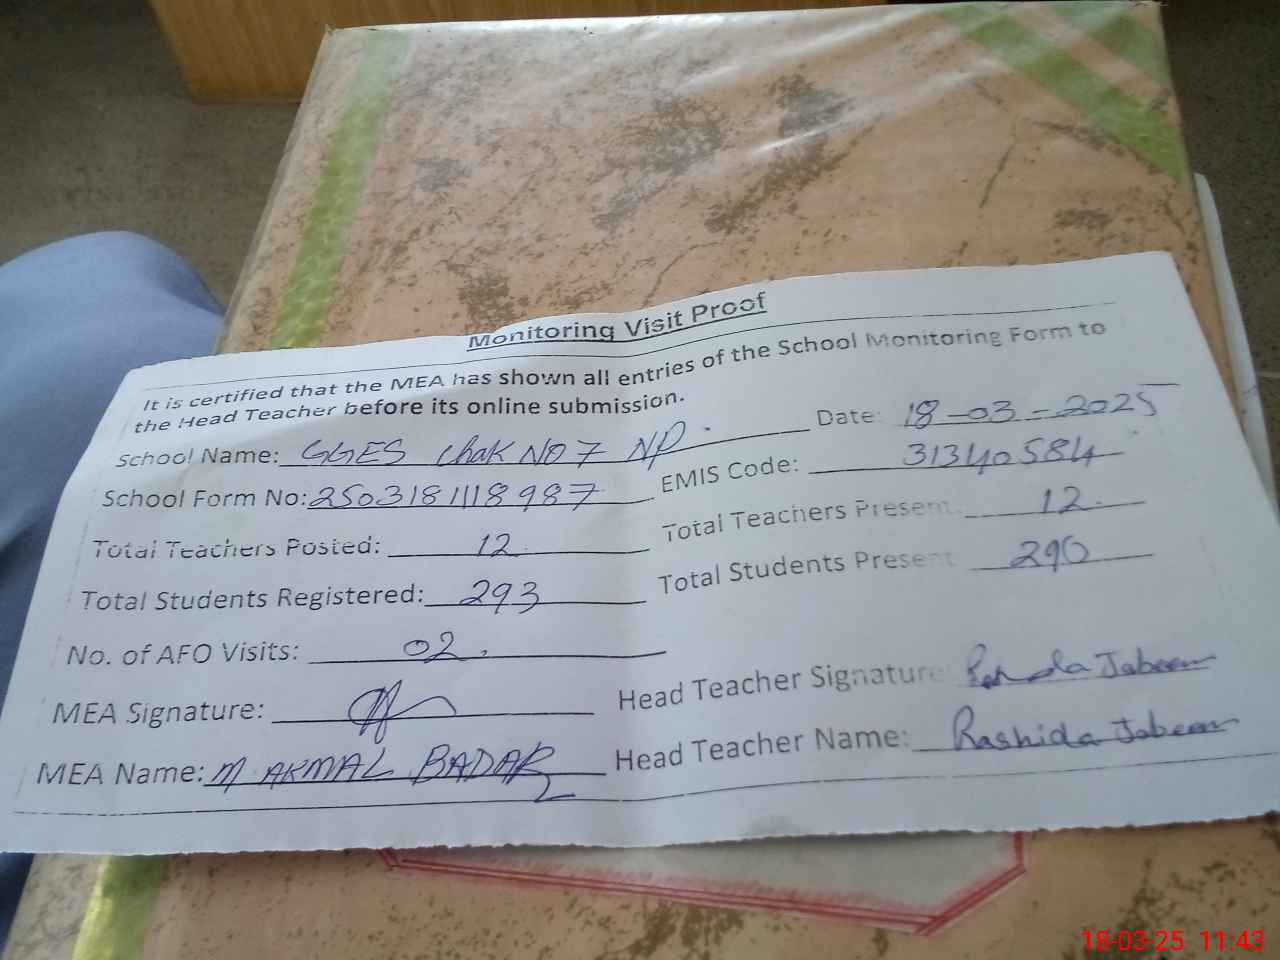 Monitoring Visit Proof
It is certified that the MEA has shown all entries of the School Monitoring Form to
the Head Teacher before its online submission.
School Name: GGES Chak No 7 NP. Date: 18-03-2025
School Form No: 2503181118987 EMIS Code: 31340584
Total Teachers Posted: 12 Total Teachers Present: 12
Total Students Registered: 293 Total Students Present: 290
No. of AFO Visits: 02
MEA Signature: Head Teacher Signature: Jabeen
MEA Name: M AKMAL BADAR Head Teacher Name: Rashida Jabeen
18-03-25 11:43